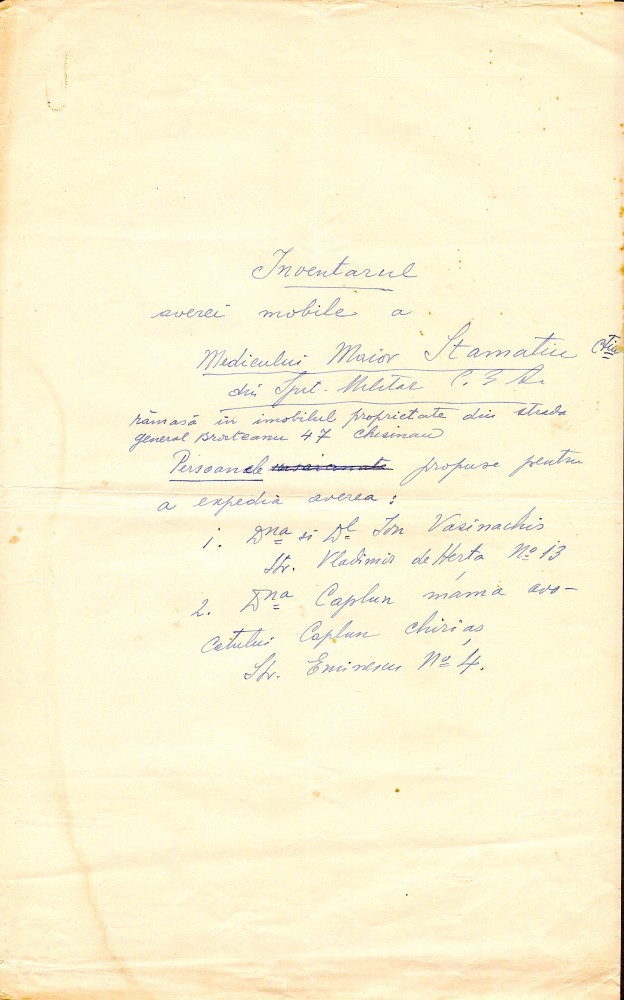 Inventarul
averei mobile a
Medicului Maior Stamatiu
din Spit. Militar C. 3 A.
rămasă in imobilul proprietate din strada
general Brosteanu 47 Chisinau
Persoanele propuse pentru
a expedia averea:
1. Dna si Dl Ion Vasinachis
Str. Vladimir de Herta No 13
2. Dna Caplun mama avo-
catului Caplun chiriaș
Str. Eminescu No 4.